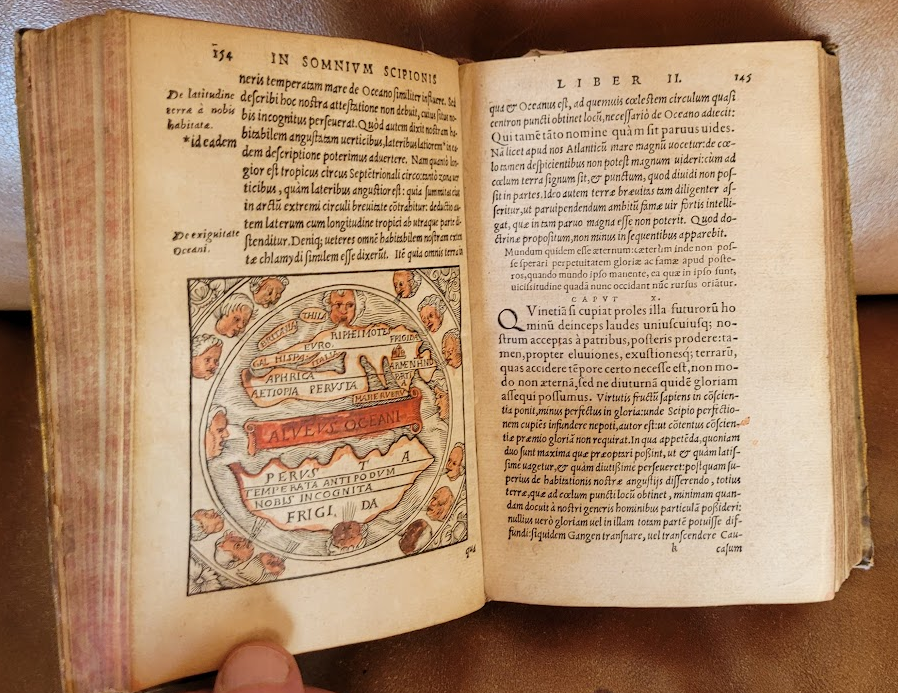 154 IN SOMNIVM SCIPIONIS
neris temperatam mare de Oceano similiter influere. Sed
De latitudine
terræ à nobis
habitata.
*id eadem
describi hoc nostra attestatione non debuit, cuius situs no
bis incognitus perseuerat. Quòd autem dixit nostram ha-
bitabilem angustatam uerticibus, lateribus latiorem* in ea-
dem descriptione poterimus aduertere. Nam quanto lon-
gior est tropicus circus Septētrionali circo tanto zona uer
ticibus, quàm lateribus angustior est: quia summitas eius
in arctū extremi circuli breuitate cōtrahitur: deductio au-
tem laterum cum longitudine tropici ab utraque parte di-
De exiguitate
Oceani.
stenditur. Deniq; ueteres omnē habitabilem nostram exten
tæ chlamydi similem esse dixerūt. Itē quia omnis terra in
THILA
RIPHEI MOTES
FRIGIDA
EVRO.
GAL HISPA ITALIA
ARMEN HND
APHRICA
AETIOPIA PERVSTA
MARE RVBRV
ALVEVS OCEANI
PERVS T A
TEMPERATA ANTIPODVM
NOBIS INCOGNITA
FRIGI DA
qua
LIBER II. 145
qua & Oceanus est, ad quemuis cœlestem circulum quasi
centron puncti obtinet locū, necessariò de Oceano adiecit:
Qui tamē tāto nomine quàm sit paruus uides.
Nā licet apud nos Atlanticū mare magnū uocetur: de cœ-
lo tamen despicientibus non potest magnum uideri: cùm ad
cœlum terra signum sit, & punctum, quod diuidi non pos-
sit in partes. Ideo autem terræ breuitas tam diligenter as-
seritur, ut paruipendendum ambitū famæ uir fortis intelli-
gat, quæ in tam paruo magna esse non poterit. Quod do-
ctrinæ propositum, non minus in sequentibus apparebit.
Mundum quidem esse æternum: cæterùm inde non pos-
se sperari perpetuitatem gloriæ ac famæ apud poste-
ros, quando mundo ipso manente, ea quæ in ipso sunt,
uicissitudine quadā nunc occidant nūc rursus oriātur.
CAPVT X.
Qvinetiā si cupiat proles illa futurorū ho
minū deinceps laudes uniuscuiusq; no-
strum acceptas à patribus, posteris prodere: ta-
men, propter eluuiones, exustionesq; terrarū,
quas accidere tēpore certo necesse est, non mo-
do non æternā, sed ne diuturnā quidē gloriam
assequi possumus. Virtutis fructū sapiens in cōscien-
tia ponit, minus perfectus in gloria: unde Scipio perfectio-
nem cupiēs infundere nepoti, autor est ut cōtentus cōscien-
tiæ præmio gloriā non requirat. In qua appetēda, quoniam
duo sunt maxima quæ præoptari possint, ut & quàm latis-
sime uagetur, & quàm diutissimè perseueret: postquam su-
perius de habitationis nostræ angustijs disserendo, totius
terræ, quæ ad cœlum pūcti locū obtinet, minimam quan-
dam docuit à nostri generis hominibus particulā possideri:
nullius uerò gloriam uel in illam totam partē potuisse dif-
fundi: siquidem Gangen transnare, uel transcendere Cau-
k casum